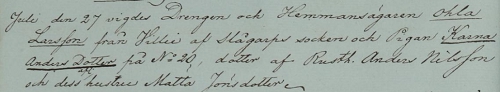 Jule den 27 vigdes Drengen och Hemmansägaren Ohla
Larsson från Hillie af Slågarps socken och Pigan Karna
Anders Dotter på No 20, dotter af Rusth. Anders Nilsson
och dess hustru Matta Jonsdotter